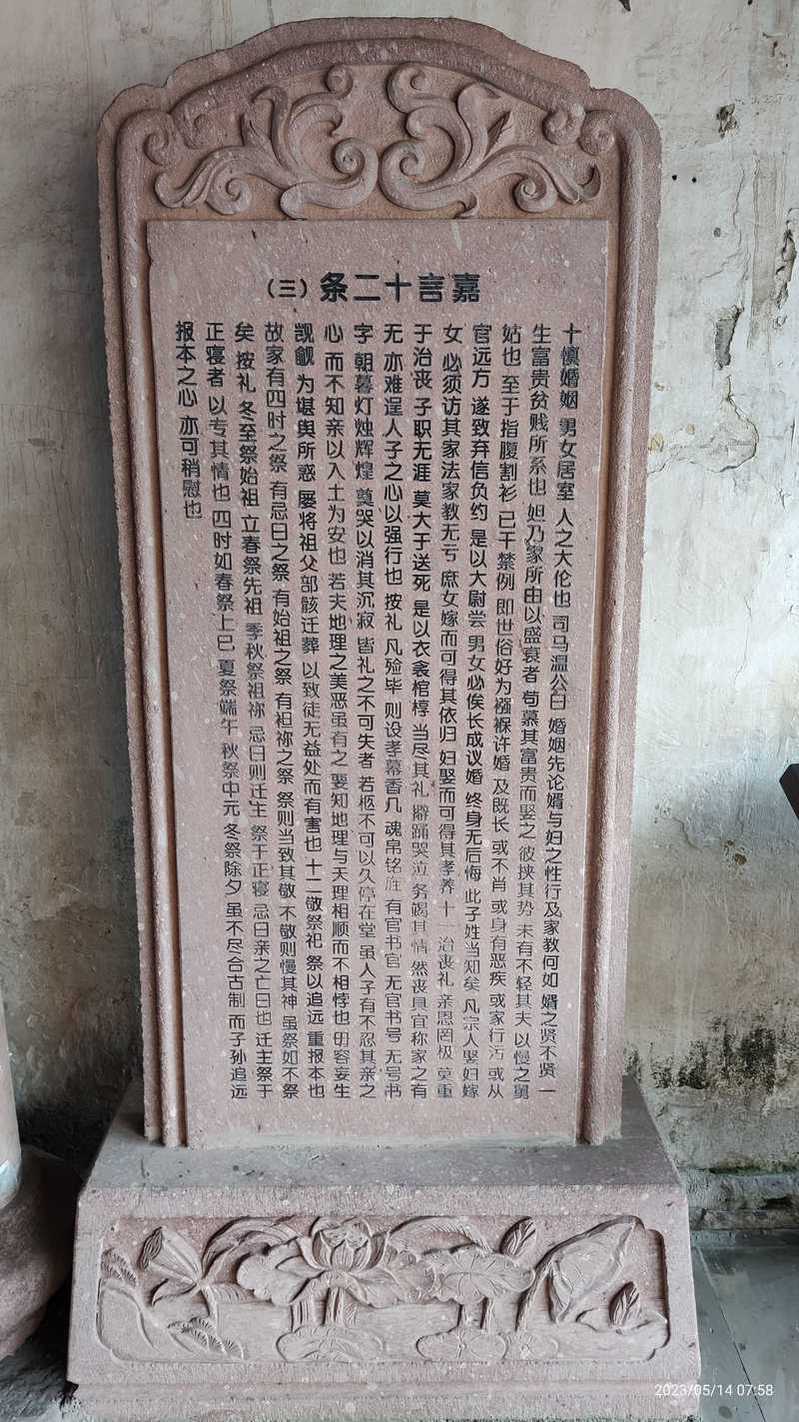 嘉言十二条（三）
十慎婚姻 男女居室 人之大伦也 司马温公曰 婚姻先论婿与妇之性行及家教何如 婿之贤不贤 一
生富贵贫贱所系也 妲乃家所由以盛衰者 苟慕其富贵而娶之 彼挟其势 未有不轻其夫 以慢之舅
姑也 至于指腹割衫 已干禁例 即世俗好为襁褓许婚 及既长 或不肖 或身有恶疾 或家行污 或从
官远方 遂致弃信负约 是以大尉尝 男女必俟长成议婚 终身无后悔 此子姓当知矣 凡宗人娶妇嫁
女 必须访其家法家教无亏 庶女嫁而可得其依归 妇娶而可得其孝养 十一治丧礼 亲恩罔极 莫重
于治丧 子职无涯 莫大于送死 是以衣衾棺椁 当尽其礼 擗踊哭泣 务竭其情 然丧具宜称家之有
无 亦难逞人子之心以强行也 按礼 凡殓毕 则设孝幕香几 魂帛铭旌 有官书官 无官书号 无号书
字 朝暮灯烛辉煌 奠哭以消其沉寂 皆礼之不可失者 若柩不可以久停在堂 虽人子有不忍其亲之
心 而不知亲以入土为安也 若夫地理之美恶虽有之 要知地理与天理相顺而不相悖也 毋容妄生
觊觎 为堪舆所惑 屡将祖父部骸迁葬 以致徒无益处而有害也 十二敬祭祀 祭以追远 重报本也
故家有四时之祭 有忌日之祭 有始祖之祭 有袒祢之祭 祭则当致其敬 不敬则慢其神 虽祭如不祭
矣 按礼 冬至祭始祖 立春祭先祖 季秋祭祖祢 忌日则迁主 祭于正寝 忌日亲之亡日也 迁主祭于
正寝者 以专其情也 四时如春祭上巳 夏祭端午 秋祭中元 冬祭除夕 虽不尽合古制 而子孙追远
报本之心 亦可稍慰也
2023/05/14 07:58